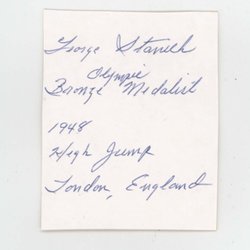 George Stanich
Olympic
Bronze Medalist
1948
High Jump
London, England